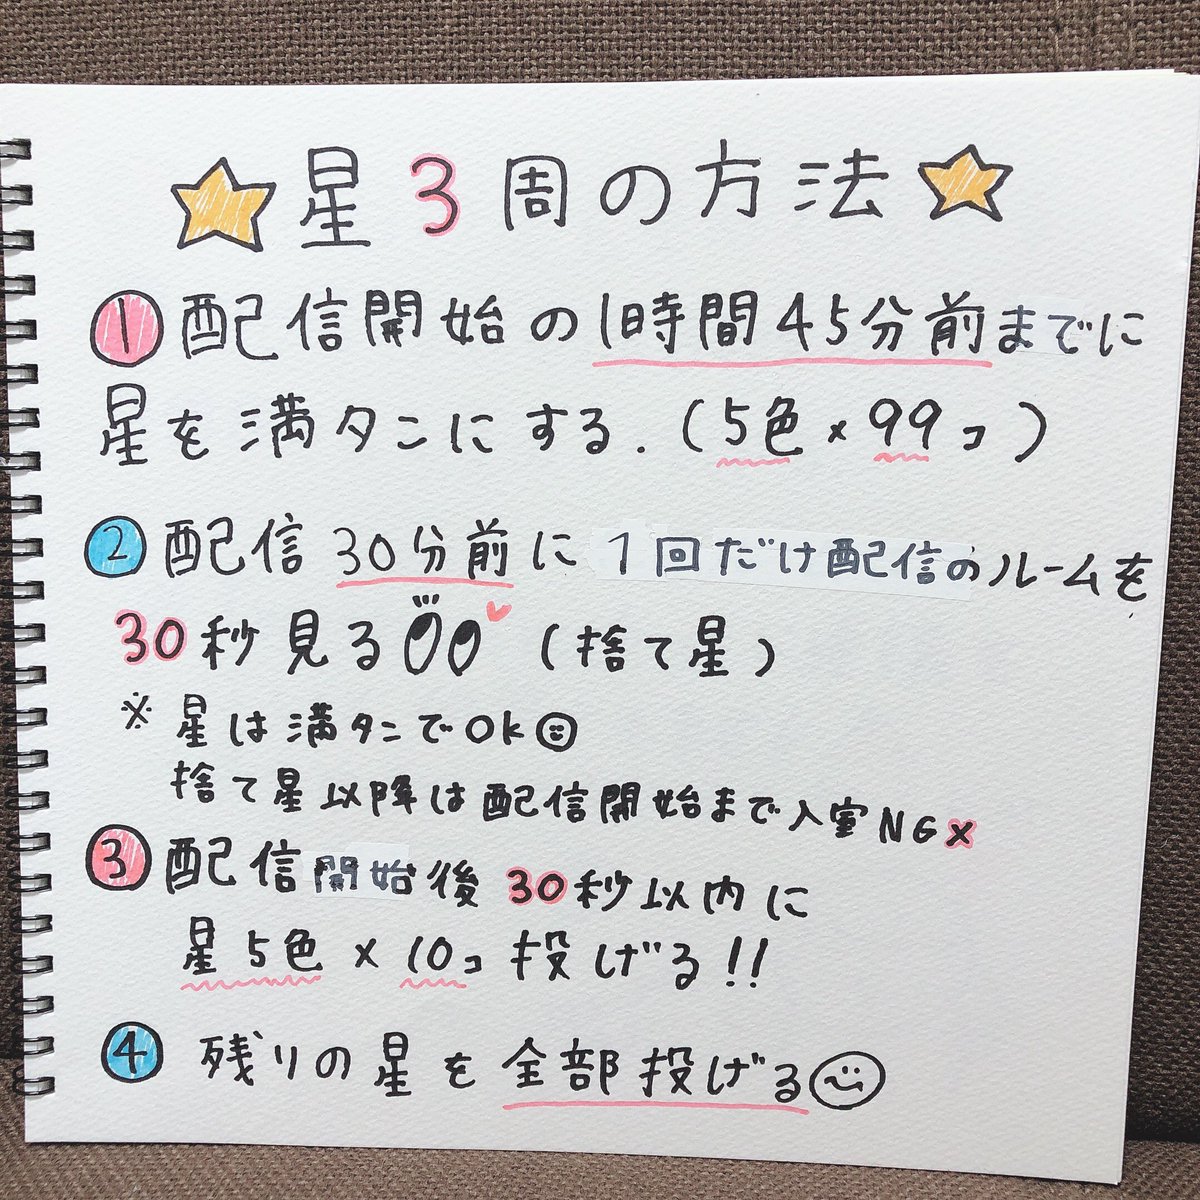 星3周の方法
① 配信開始の1時間45分前までに
星を満タンにする.(5色×99コ)
② 配信30分前に1回だけ配信のルームを
30秒見る (捨て星)
※ 星は満タンでOK
捨て星以降は配信開始まで入室NG×
③ 配信開始後30秒以内に
星5色×10コ投げる!!
④ 残りの星を全部投げる